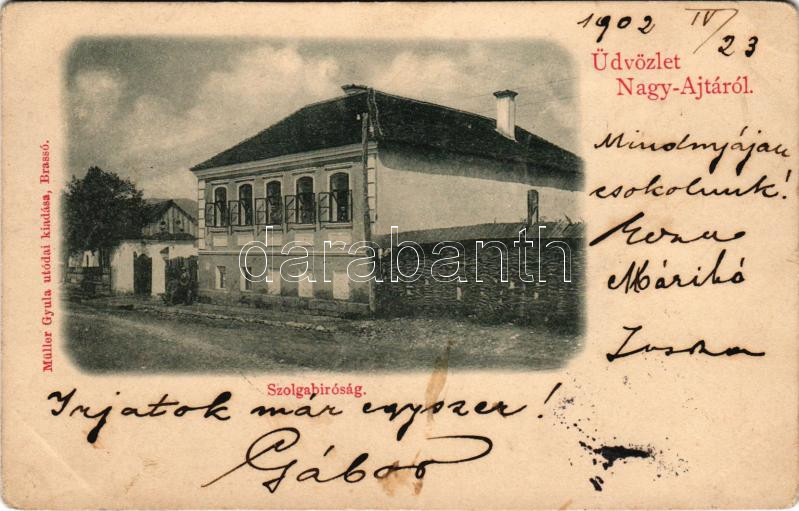 1902 IV/23
Üdvözlet
Nagy-Ajtáról.
Mindnyájan
csokolunk!
Márikó
Müller Gyula utódai kiadása, Brassó.
darabanth
Szolgabiróság.
Irjatok már egyszer!
Gábor